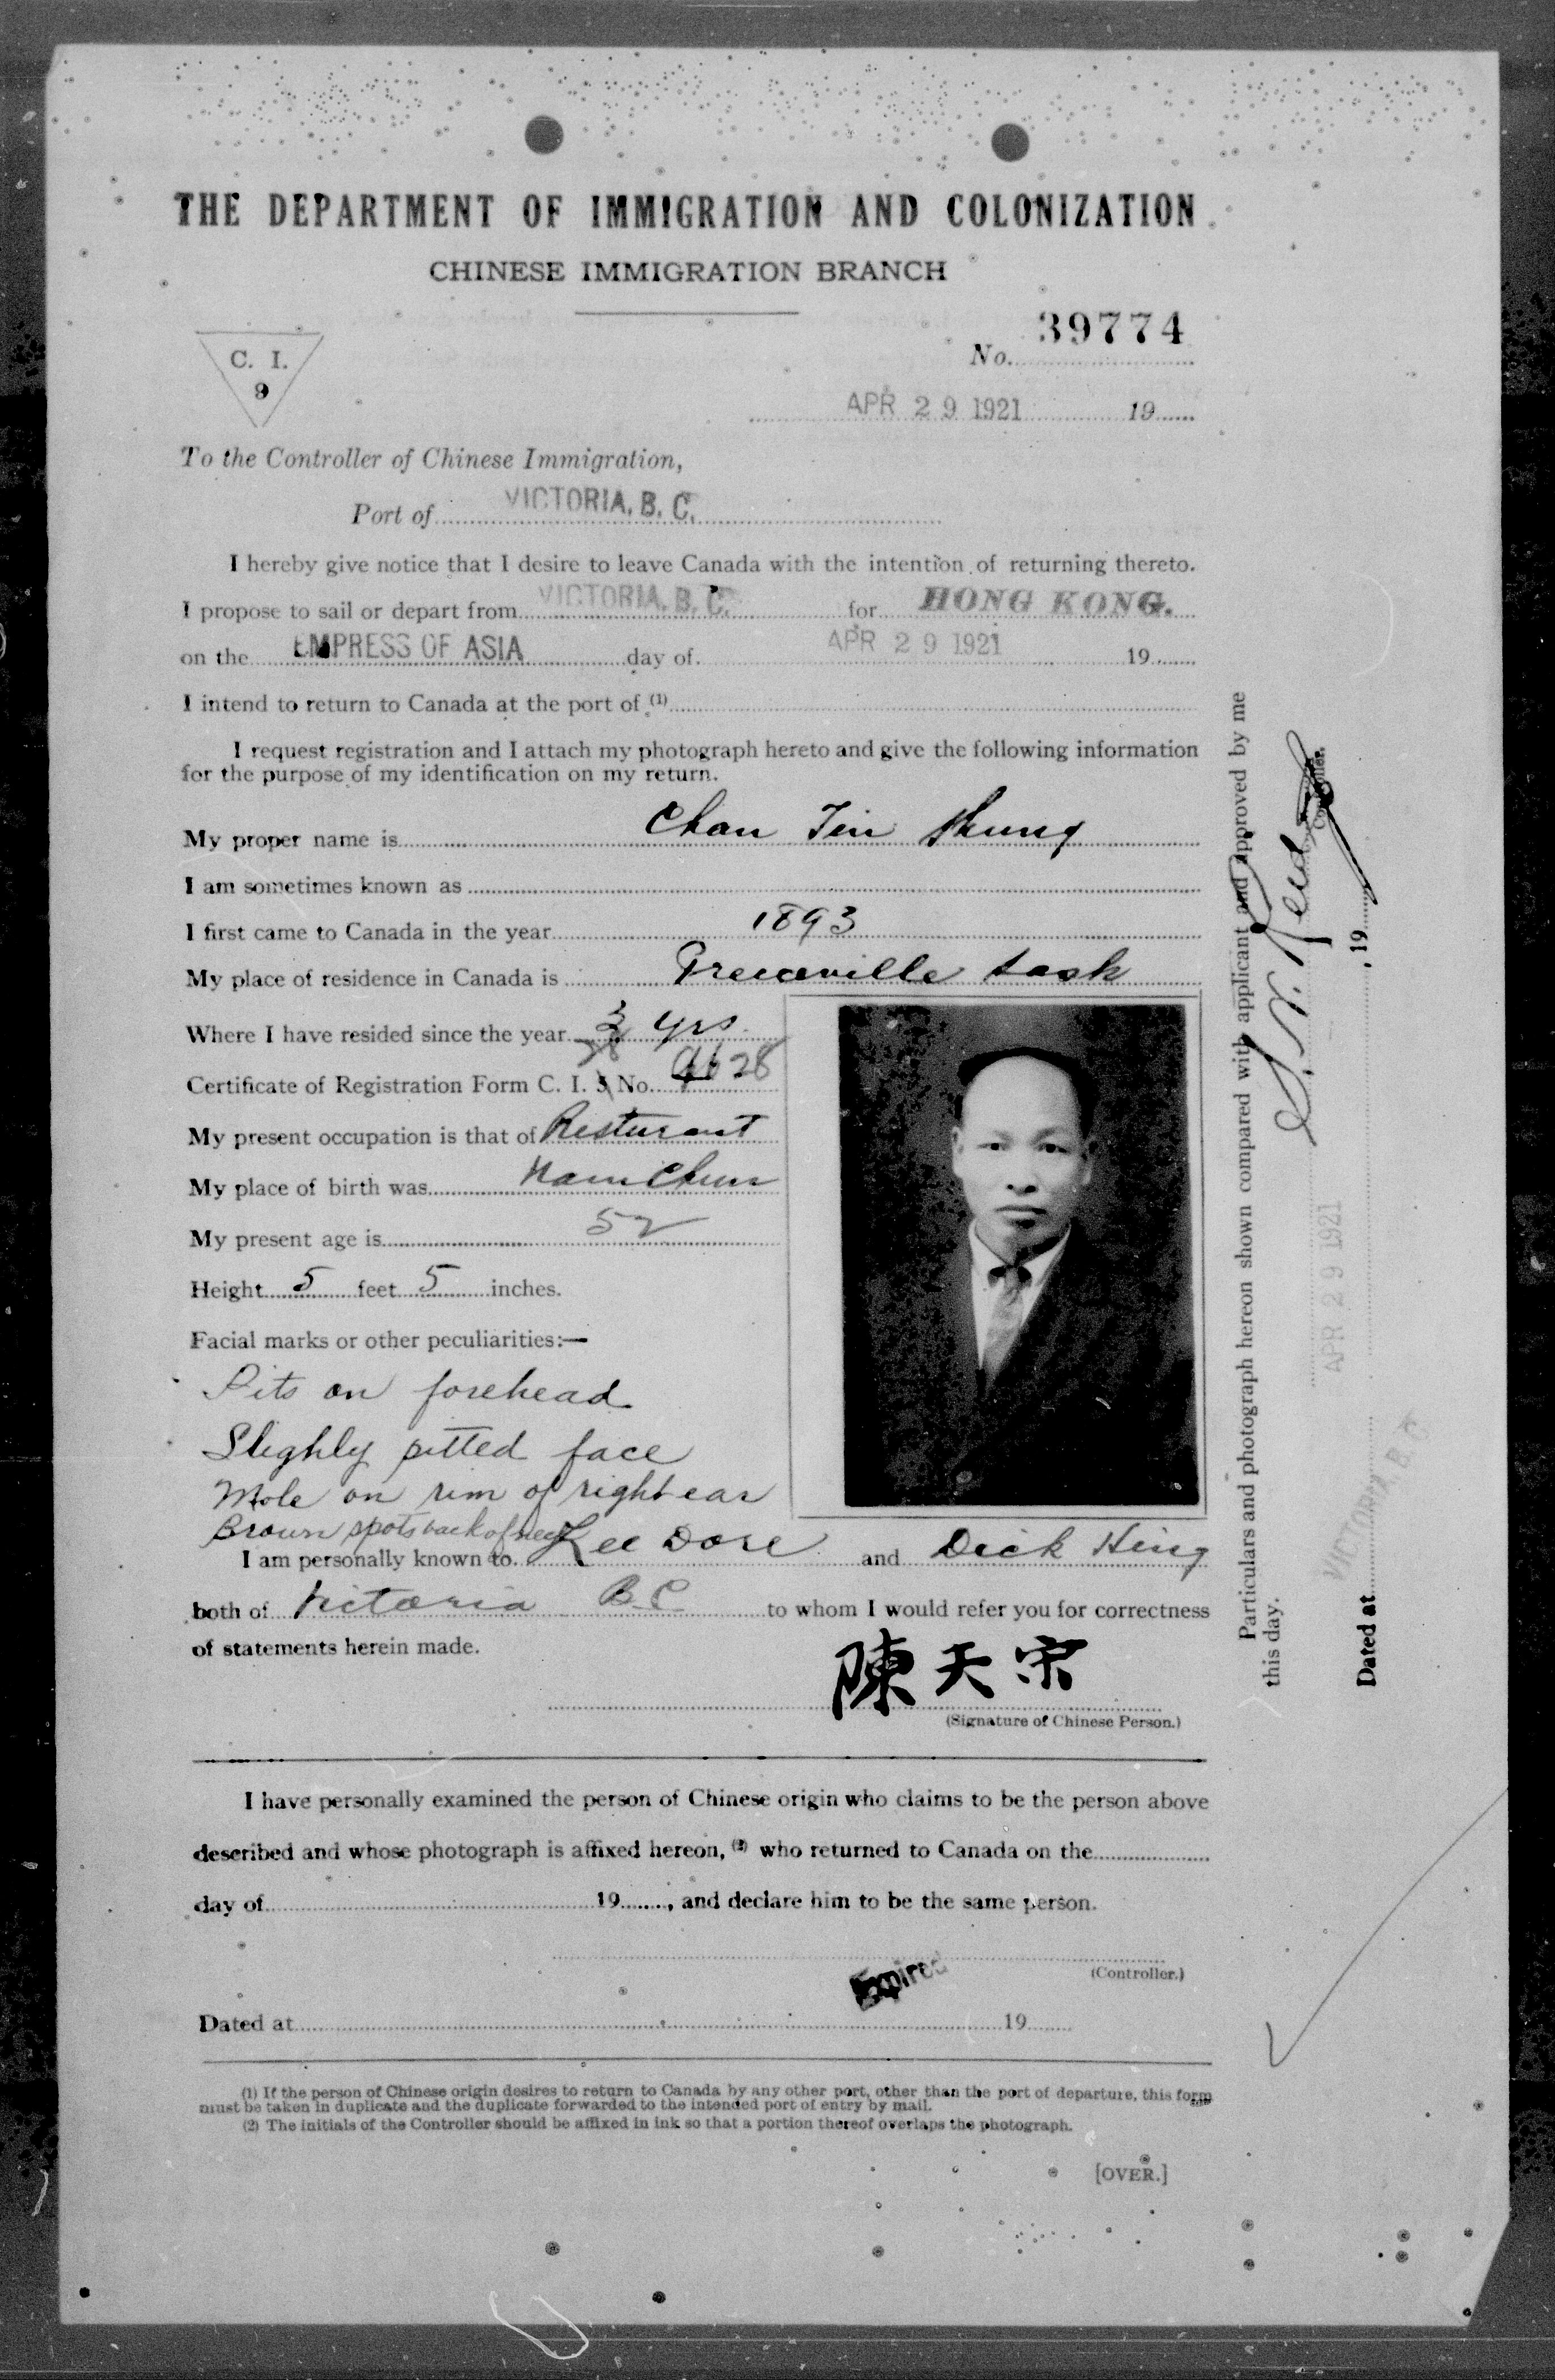 THE DEPARTMENT OF IMMIGRATION AND COLONIZATION
CHINESE IMMIGRATION BRANCH
C. I.
9
No. 39774
APR 29 1921 19
To the Controller of Chinese Immigration,
Port of VICTORIA, B. C.
I hereby give notice that I desire to leave Canada with the intention of returning thereto.
I propose to sail or depart from VICTORIA, B. C. for HONG KONG.
on the EMPRESS OF ASIA day of APR 29 1921 19
I intend to return to Canada at the port of (1)
I request registration and I attach my photograph hereto and give the following information
for the purpose of my identification on my return.
My proper name is Chan Tin
I am sometimes known as
I first came to Canada in the year 1893
My place of residence in Canada is Sask
Where I have resided since the year 3 yrs
Certificate of Registration Form C. I. 5 No. 28
My present occupation is that of Resturant
My place of birth was Nam Chun
My present age is 52
Height 5 feet 5 inches.
Facial marks or other peculiarities:—
Pits on forehead
Slighly pitted face
Mole on rim of right ear
Brown spots back of neck
I am personally known to Lee Dore and Dick Hing
both of Victoria B C to whom I would refer you for correctness
of statements herein made.
陳天宗
(Signature of Chinese Person.)
I have personally examined the person of Chinese origin who claims to be the person above
described and whose photograph is affixed hereon, (2) who returned to Canada on the
day of 19, and declare him to be the same person.
(Controller.)
Expired
Dated at 19
(1) If the person of Chinese origin desires to return to Canada by any other port, other than the port of departure, this form
must be taken in duplicate and the duplicate forwarded to the intended port of entry by mail.
(2) The initials of the Controller should be affixed in ink so that a portion thereof overlaps the photograph.
[OVER.]
Particulars and photograph hereon shown compared with applicant and approved by me
this day.
APR 29 1921
Controller.
Dated at VICTORIA, B. C. , 19